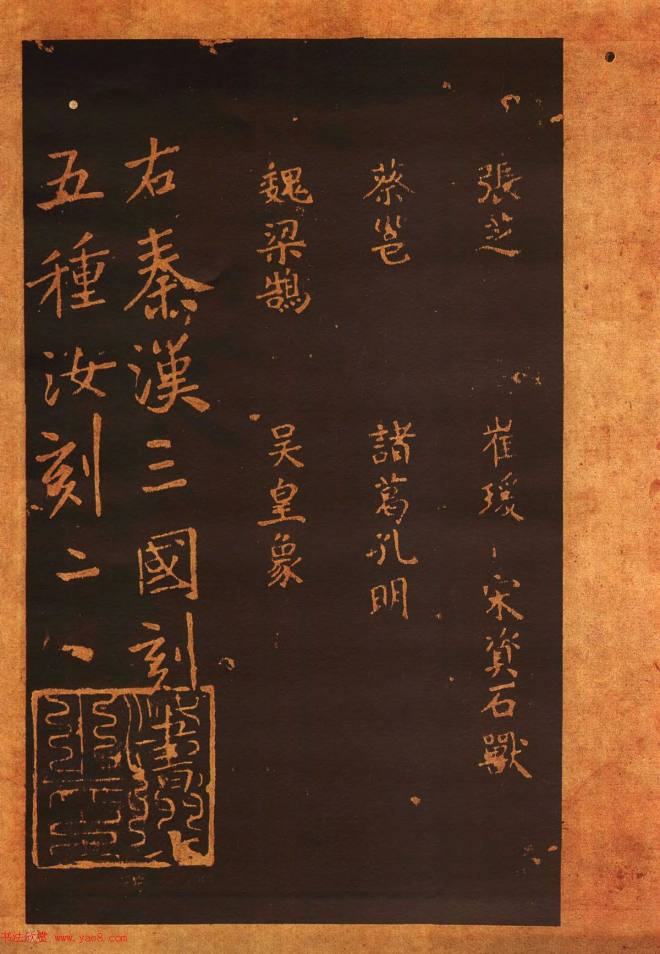 張芝 崔瑗 宋資石獸
蔡邕 諸葛孔明
魏梁鵠 吳皇象
右秦漢三國刻
五種汝刻二八
书法欣赏 www.yac8.com